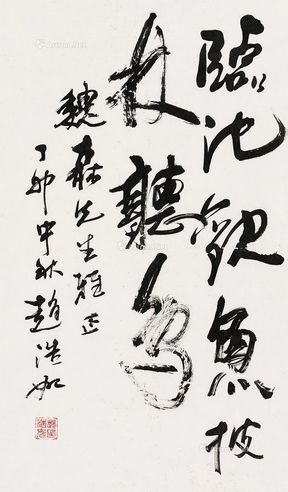 臨池觀魚披
林聽鳥
魏森先生雅正
丁卯中秋趙浩如